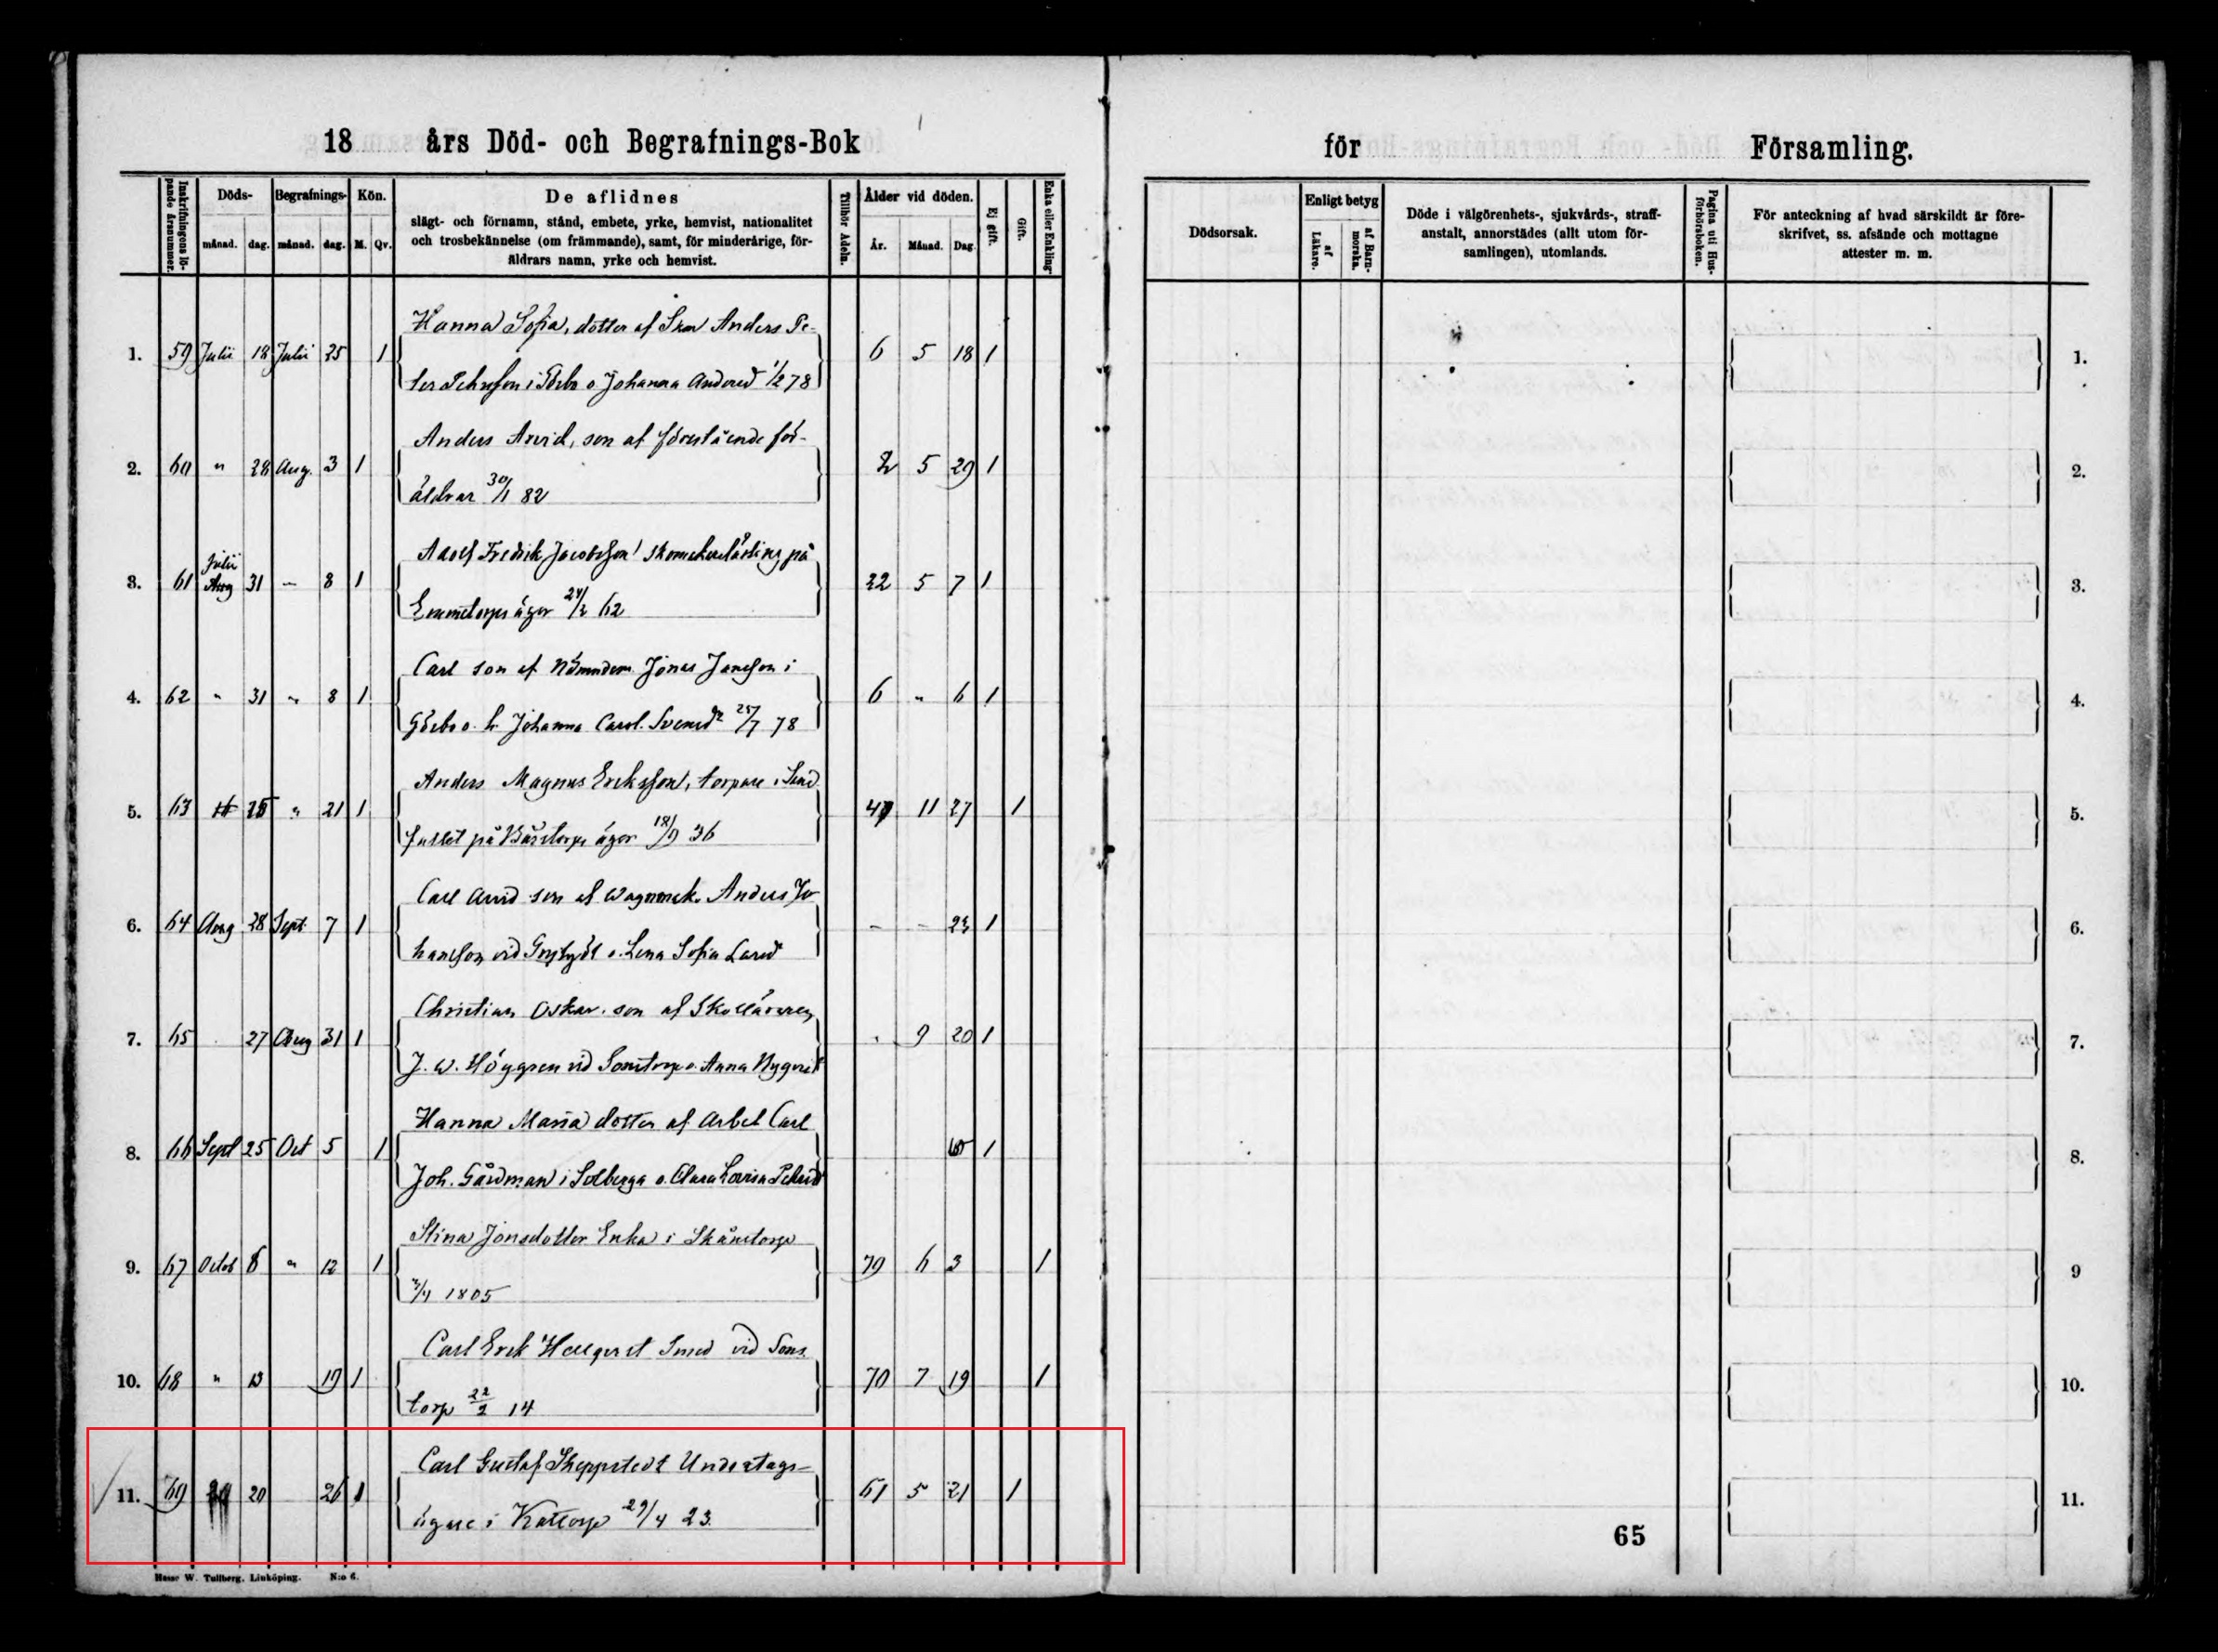 18 års Död- och Begrafnings-Bok
för Församling.
Inskrifningens löpande årsnummer.
Döds- månad. dag.
Begrafnings- månad. dag.
Kön. M. Qv.
De aflidnes
slägt- och förnamn, stånd, embete, yrke, hemvist, nationalitet
och trosbekännelse (om främmande), samt, för minderårige, för-
äldrars namn, yrke och hemvist.
Tillhör Adeln.
Ålder vid döden. År. Månad. Dag.
Ej gift.
Gift.
Enka eller Enkling.
Dödsorsak.
Enligt betyg
af Läkare.
af Barn-morska.
Döde i välgörenhets-, sjukvårds-, straff-
anstalt, annorstädes (allt utom för-
samlingen), utomlands.
Pagina uti Hus-förhörsboken.
För anteckning af hvad särskildt är före-
skrifvet, ss. afsände och mottagne
attester m. m.
Hanna Sofia, dotter af Anders Pe-
1. 59 Julii 18 Julii 25 1 6 5 18 1 1.
i o Johanna Andersd 1/2 78
Anders Arvid, son af förestående för-
2. 60 " 28 Aug. 3 1 2 5 29 1 2.
äldrar 30/1 82
Adolf Fredrik Jacobsson Skomakarelärling på
Julii
3. 61 Aug 31 – 8 1 22 5 7 1 3.
Emmetorps ägor 24/2 62
Carl son af Nämndem. Jonas Jonsson i
4. 62 " 31 " 8 1 6 " 6 1 4.
Görbo o. h. Johanna Carol. Svensdr 25/7 78
Anders Magnus Eriksson, torpare i
5. 63 " 21 1 47 11 27 1 5.
på ägor 18/9 36
Carl Arvid son af Wagnmak. Anders Jo-
6. 64 Aug 28 Sept. 7 1 – – 23 1 6.
hansson vid o. Lena Sofia Larsd
Christian Oskar. son af Skolläraren
7. 65 27 Aug 31 1 " 9 20 1 7.
J. W. Höggren vid o. Anna Nyqvist
Hanna Maria dotter af Arbet Carl
8. 66 Sept 25 Oct 5 1 1 8.
Joh. Gårdman i Solberga o. Clara Lovisa Petersd
Stina Jonsdotter Enka i Skånstorp
9. 67 Octob 6 " 12 1 79 6 3 1 9
3/4 1805
Carl Erik Hellqvist Smed vid Sons-
10. 68 " 13 19 1 70 7 19 1 10.
torp 22/2 14
Carl Gustaf Skeppstedt Undantags-
11. 69 20 26 1 61 5 21 1 11.
ägare i Kattorp 29/4 23.
65
Hasse W. Tullberg, Linköping. N:o 6.